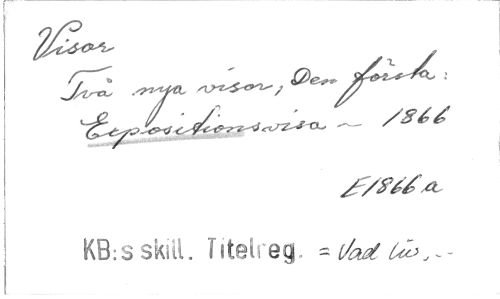 Visor
Två nya visor, Den första:
Expositionsvisa ~ 1866
E1866a
KB:s skill. Titelreg. = Vad liv,...